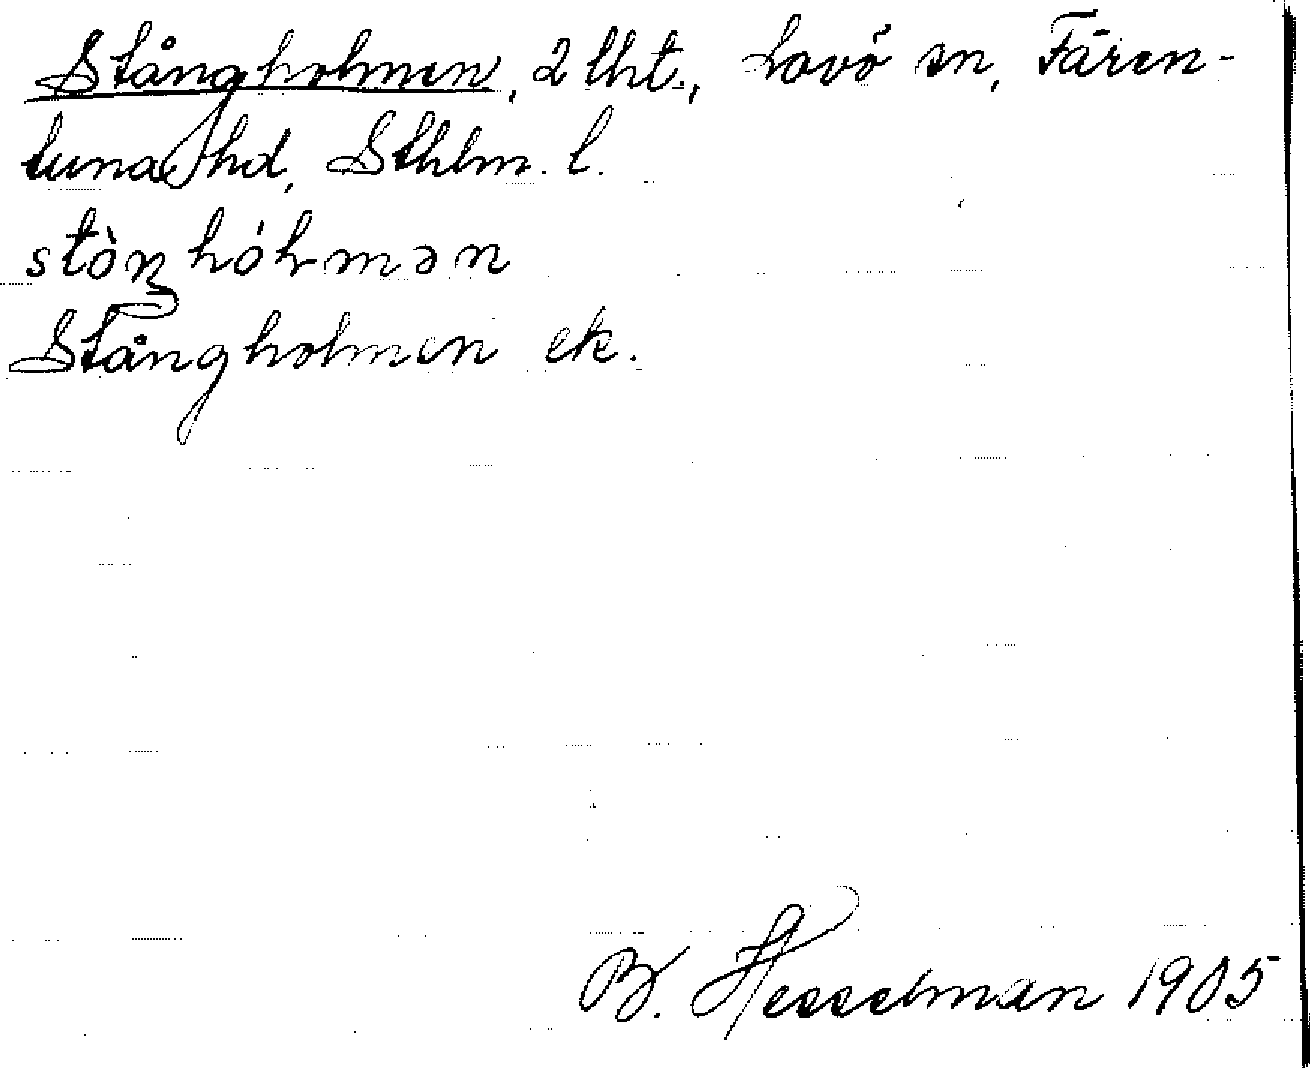 Stångholmen, 2 lht., Lovö sn, Fären-
tuna hd, Sthlm. l.
stòŋhólmən
Stångholmen ek.
B. Hesselman 1905